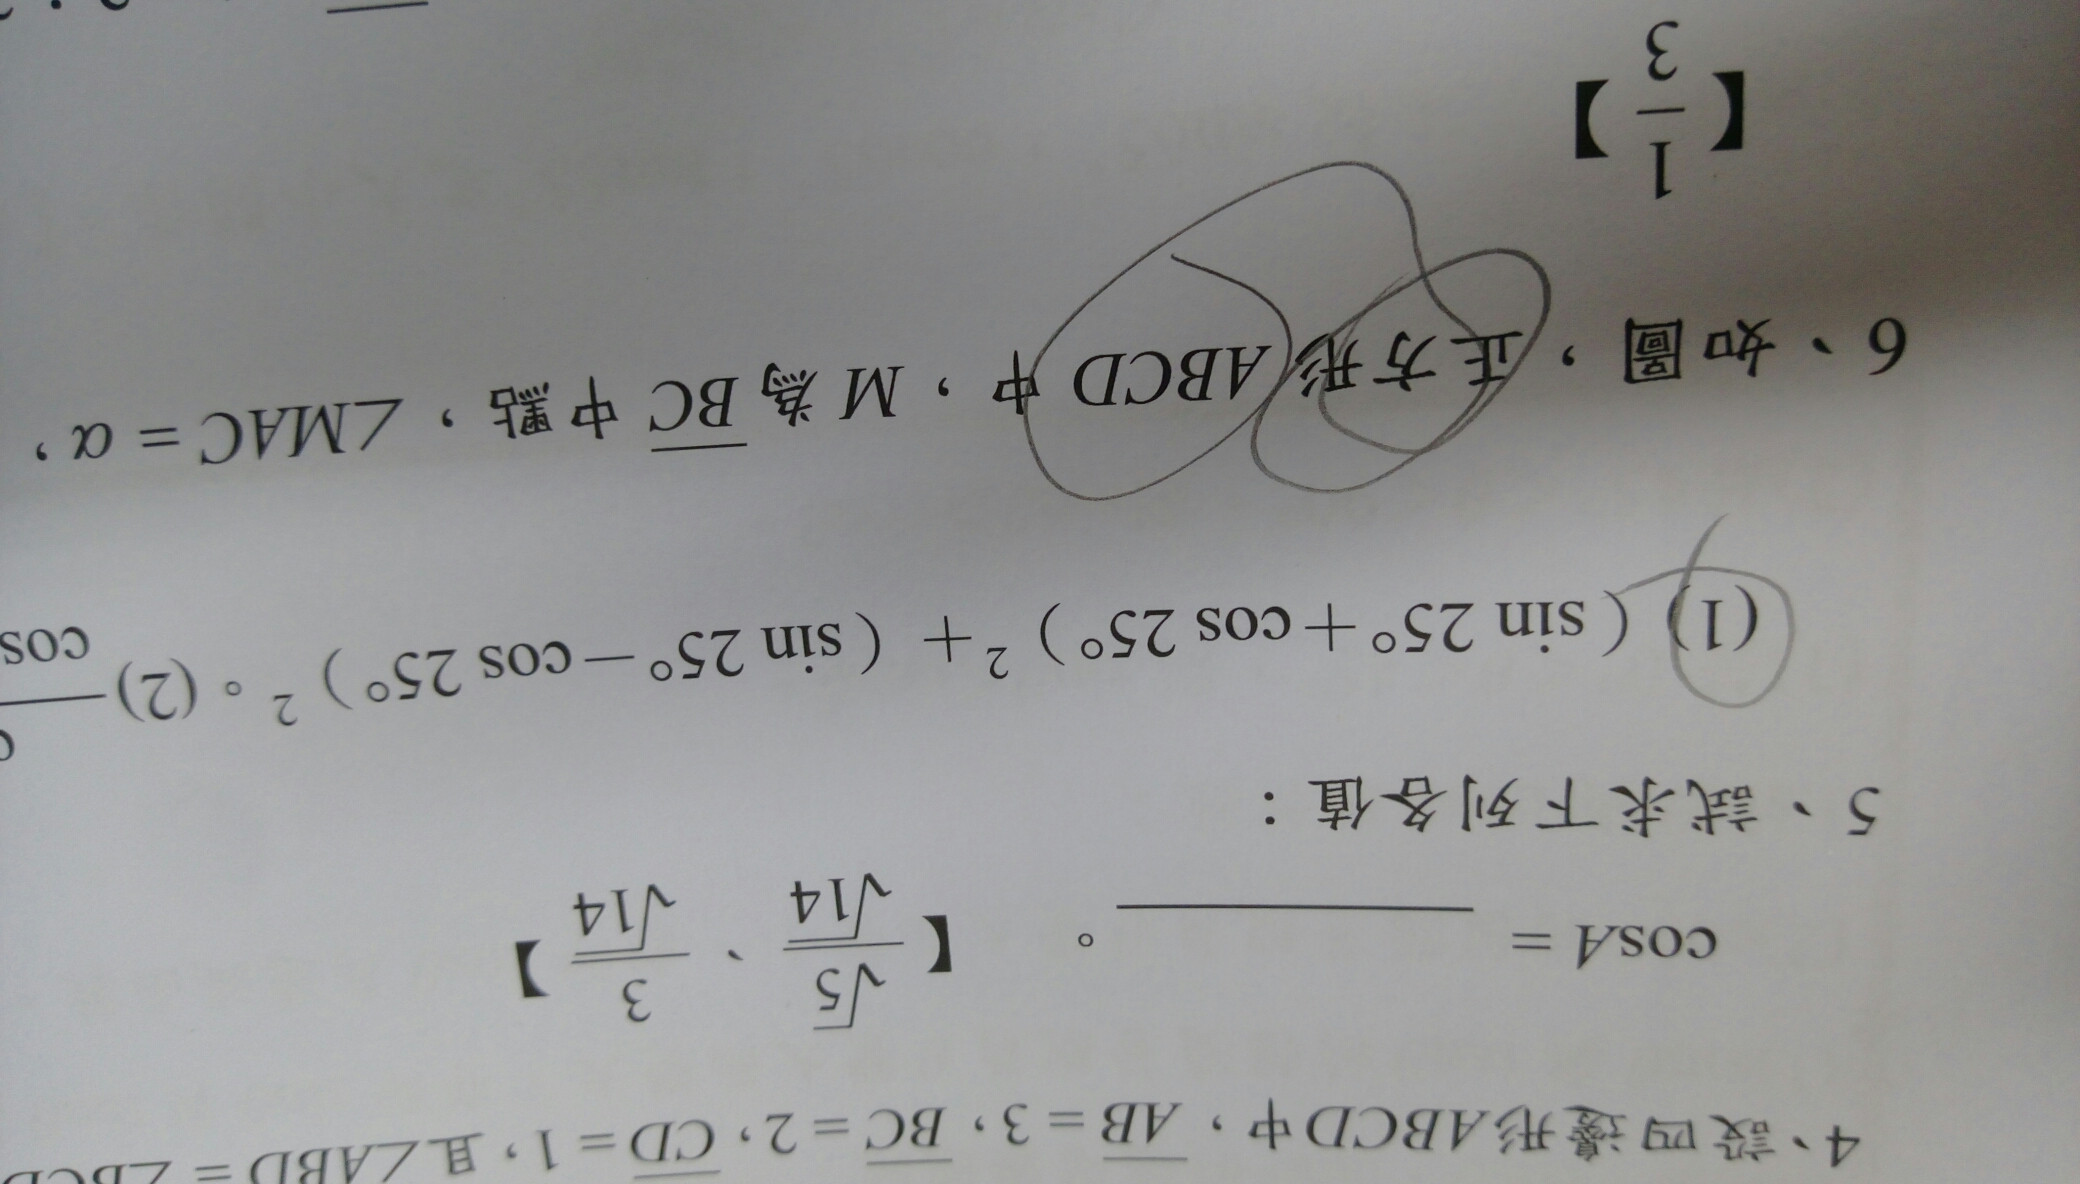 4、設四邊形ABCD中，AB = 3，BC = 2，CD = 1，且∠ABD = ∠BCD
cosA = ________。 【√5/√14、3/√14】
5、試求下列各值：
(1)（sin 25°+cos 25°）²+（sin 25°−cos 25°）²。(2) cos
6、如圖，正方形 ABCD 中，M 為 BC 中點，∠MAC = α，
【1/3】